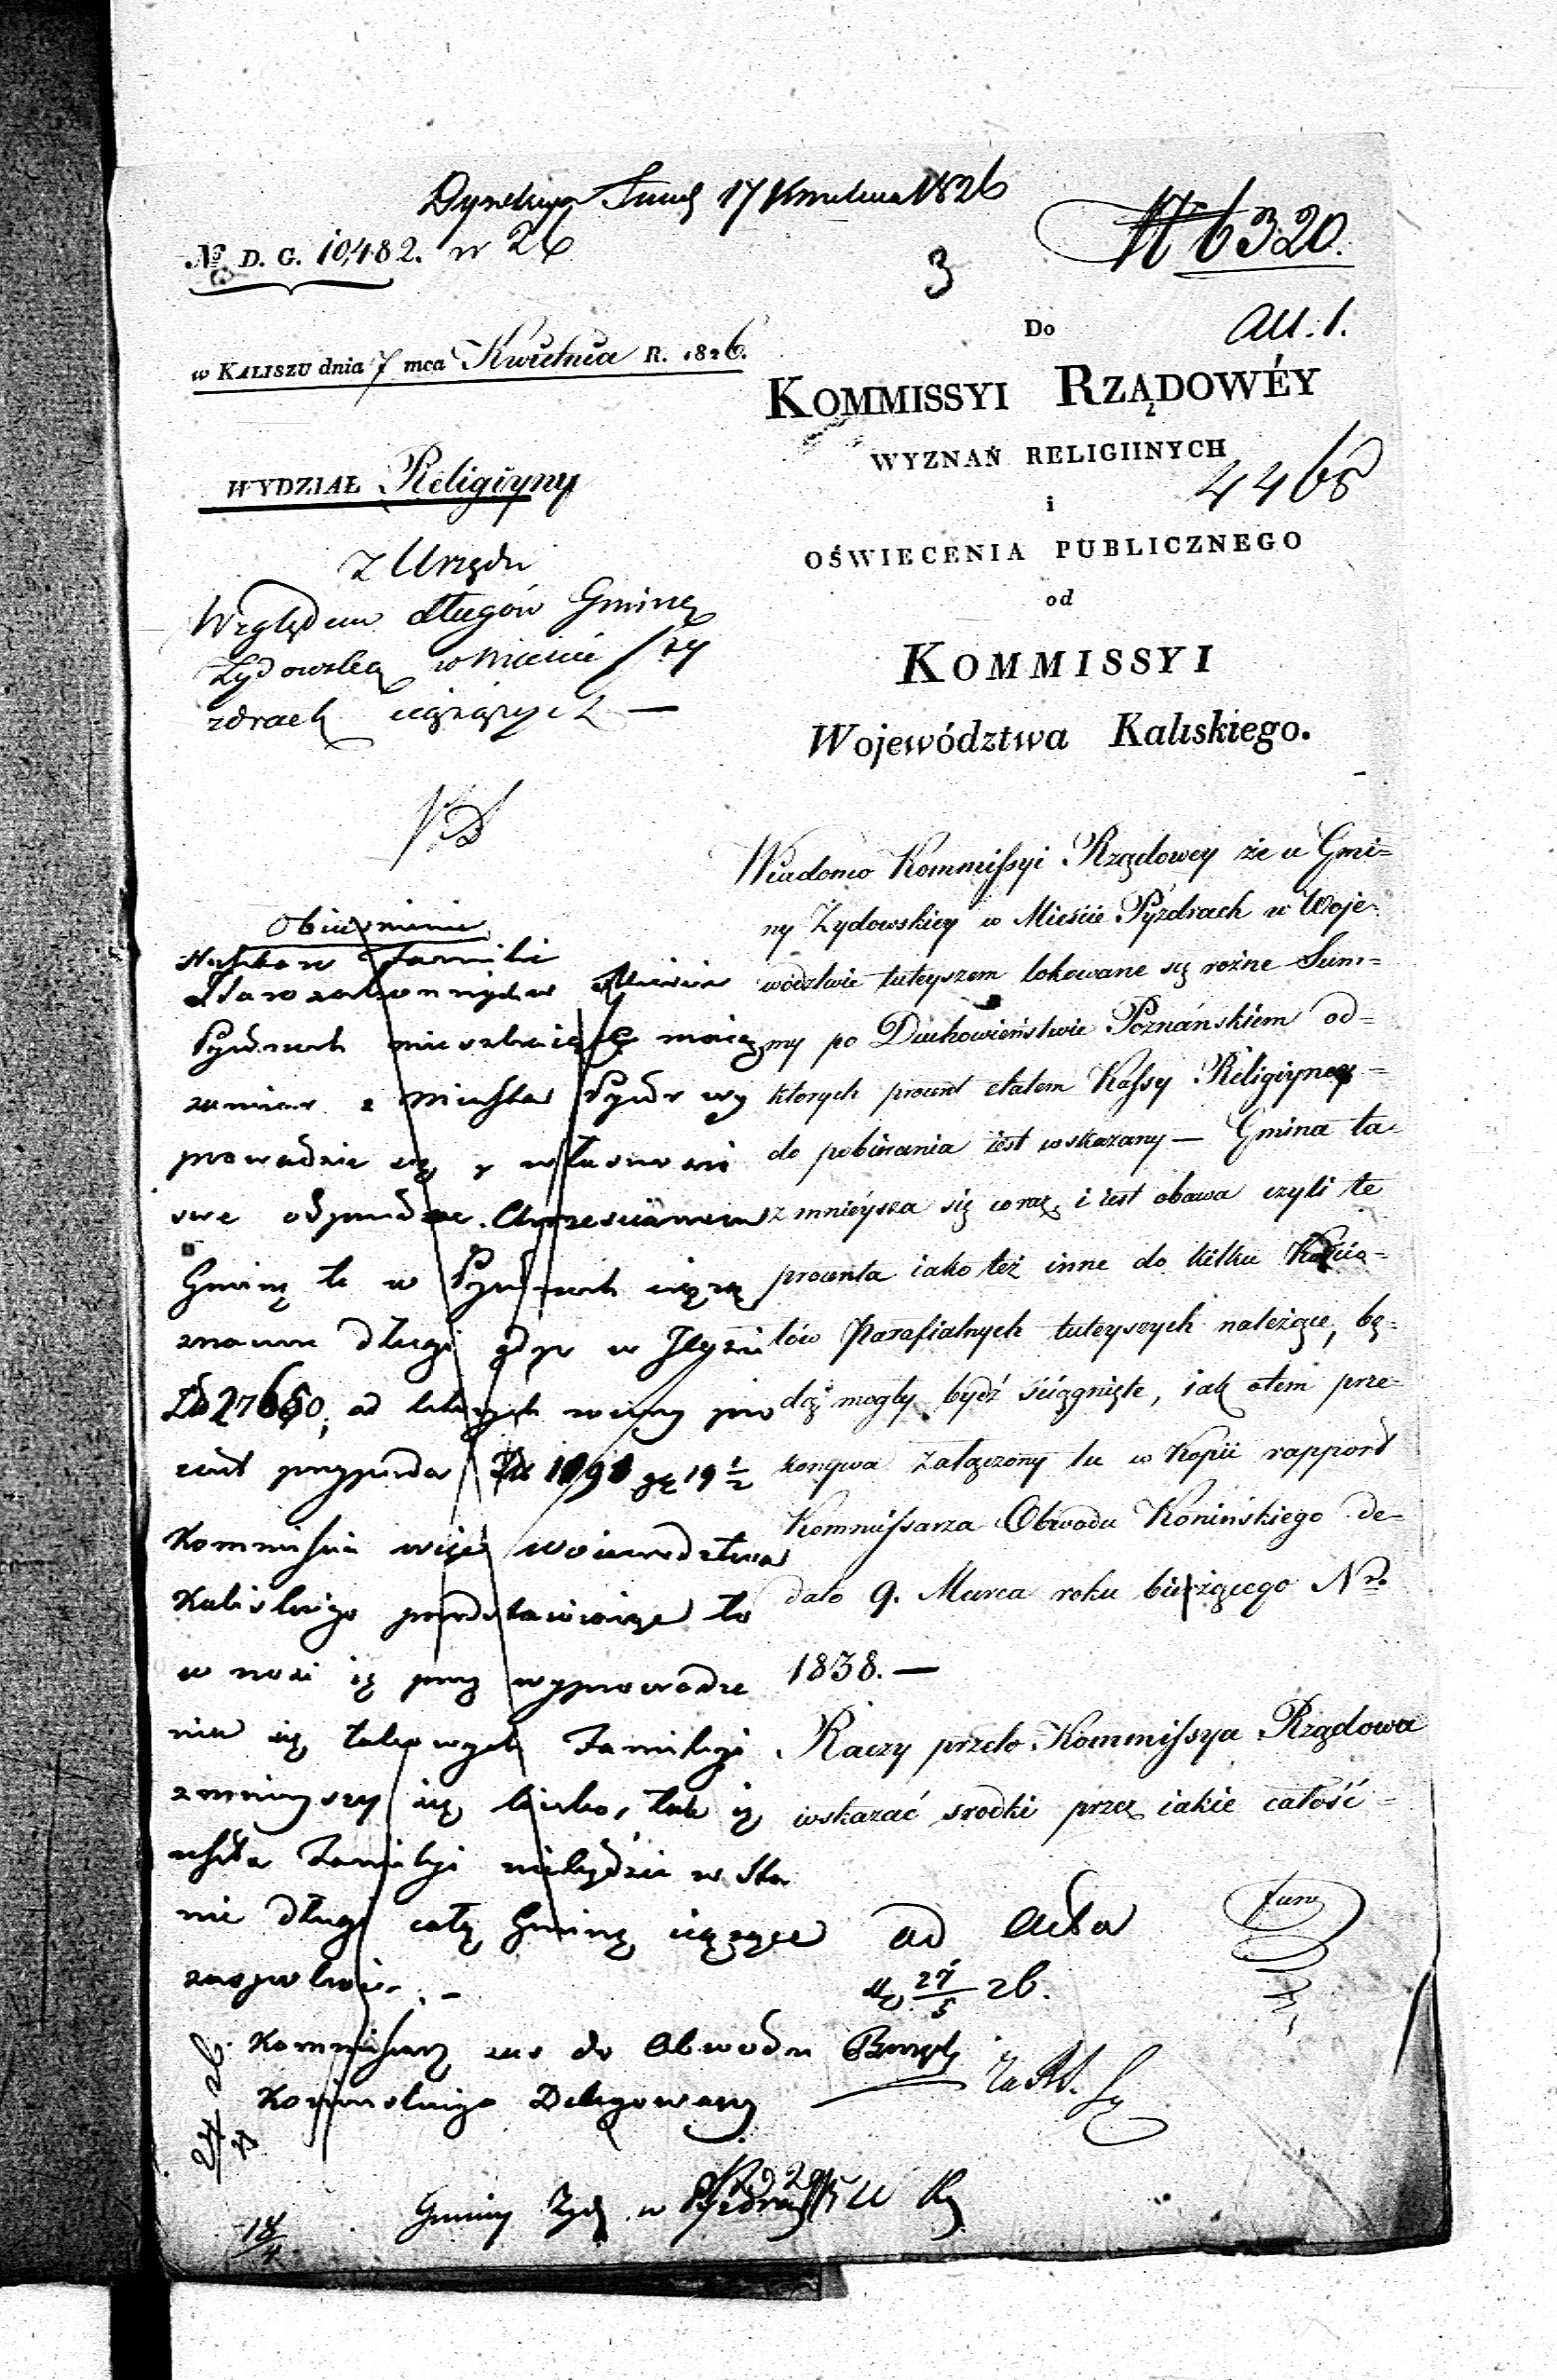 17 Kwietnia 1826
№ D. G. 10,482. w 26
3
№ 6320.
All. 1.
w KALISZU dnia 7 mca Kwietnia R. 1826.
Do
KOMMISSYI RZĄDOWÉY
WYZNAŃ RELIGIINYCH
4468
i
OŚWIECENIA PUBLICZNEGO
od
KOMMISSYI
Województwa Kaliskiego.
WYDZIAŁ Religiyny
Z Urzędu
Względem długów Gminę
Zydowską w Mieście Py
zdrach ciążących —
Wiadomo Kommissyi Rządowey że u Gmi=
ny Zydowskiey w Mieście Pyzdrach w Woje=
wództwie tuteyszem lokowane są rożne Sum=
my po Duchowieństwie Poznańskiem od=
ktorych procent etatem Kassy Religiyney =
do pobierania iest wskazany — Gmina ta=
zmnieysza się coraz, i iest obawa czyli te
procenta iako też inne do kilku Kościo=
łów Parafialnych tuteyszych należące, bę=
dą mogły bydź ściągnięte, iak otem prze=
konywa załączony tu w Kopii rapport
Kommissarza Obwodu Konińskiego de=
dato 9. Marca roku bieżącego Nro
1838. —
Raczy przeto Kommissya Rządowa
wskazać srodki przez iakie całość =
Obiasnienie
Familii
Starozakonnych w Mieście
Pyzdrach mieszkaiące maią
zamiar z Miasta Pyzdr wy
prowadzić się y własności
swe odprzedać Chrześcianom
Gminę te w Pyzdrach ciążą
znaczne długi gdyż w Ilości
Zł 27650, od ktorych roczny pro
cent przypada Zł 1098 gr 19 1/2
Kommissia więc Woiewodztwa
Kaliskiego przedstawiaiąc to
wnosi iż przy wyprowadze
niu się takowych Familyi
zmnieyszy się liczba, tak iż
reszta Familyi niebędzie w Sta
nie długi całą Gminę ciążące
zaspokoić. —
Kommissarz do Obwodu
Konińskiego Delegowany
ad Acta
27/5 26.
24/4 26
18/4
Gminy Zyd. w Pyzdrach